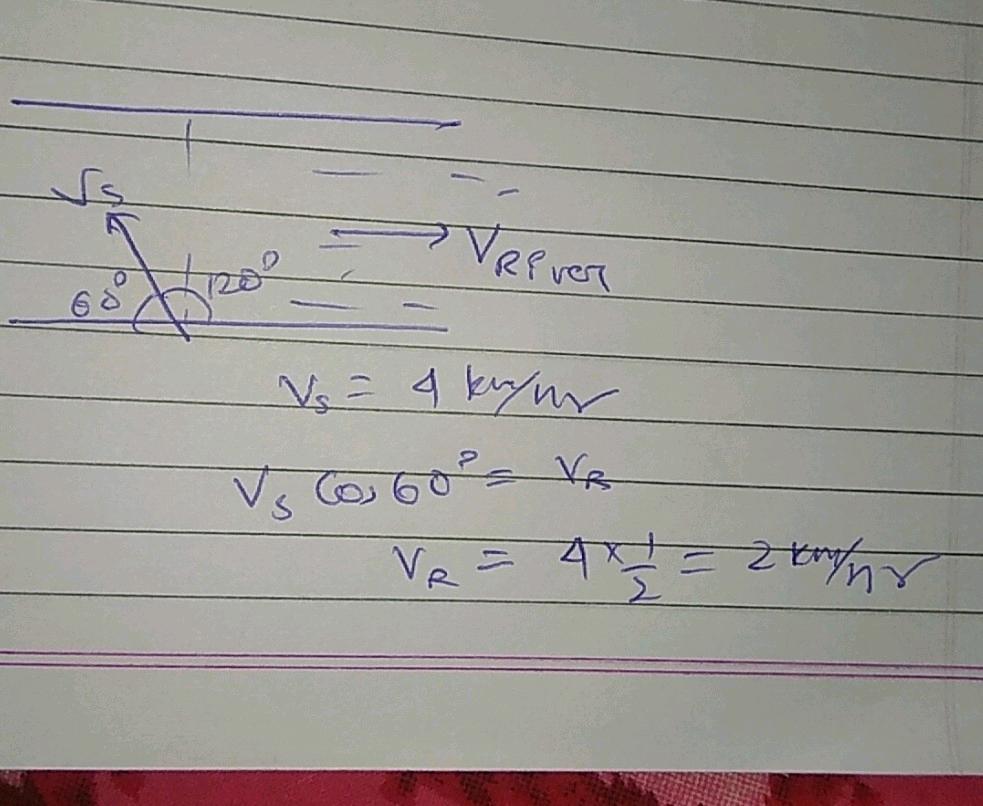 Vs
60° 120°
VRiver
Vs = 4 km/hr
Vs Cos 60° = VR
VR = 4 × 1/2 = 2 km/hr